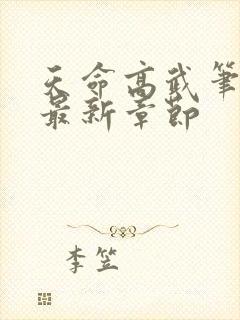 天命高武笔
最新章节
李笠